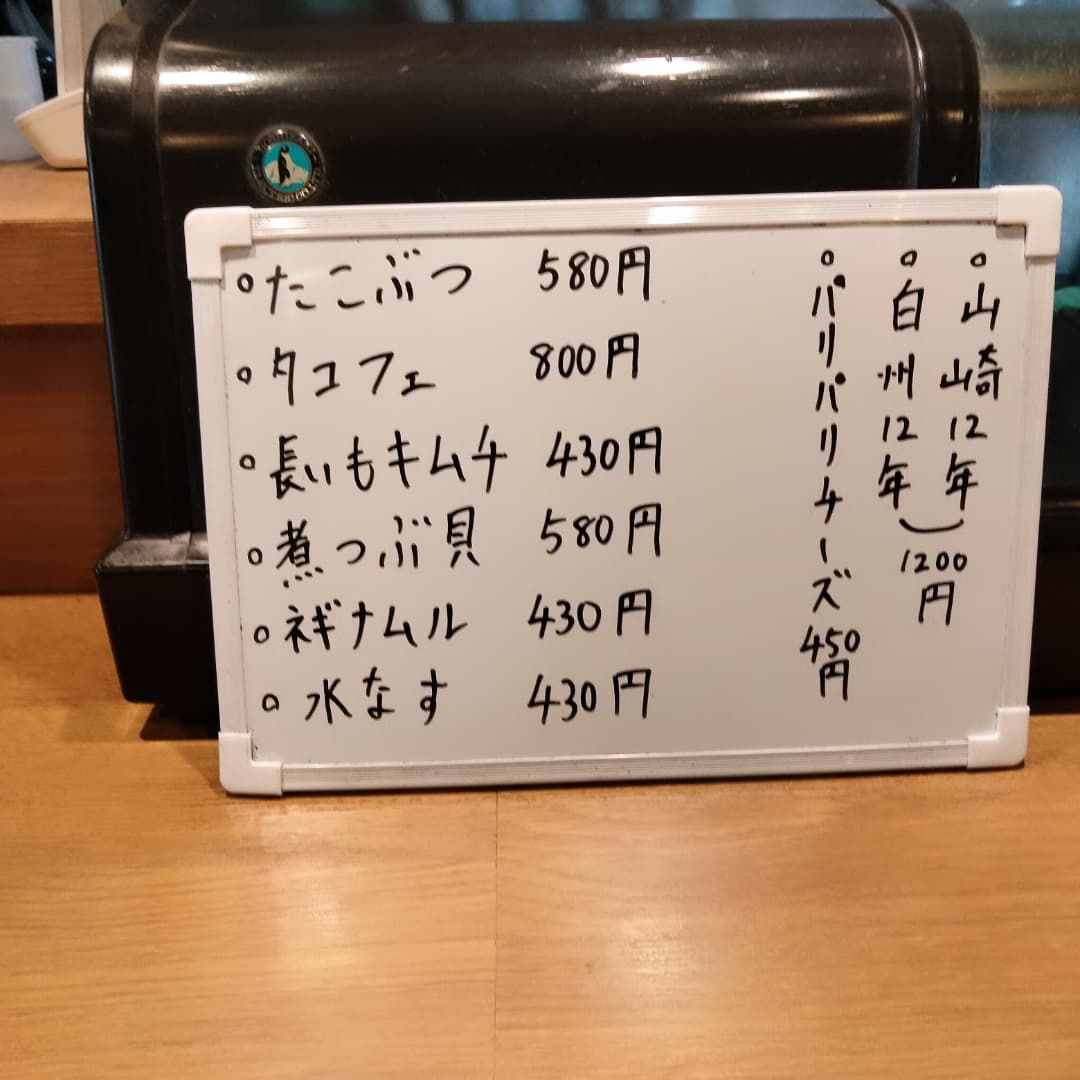 たこぶつ 580円
タコフェ 800円
長いもキムチ 430円
煮つぶ貝 580円
ネギナムル 430円
水なす 430円
山崎12年
白州12年
1200円
パリパリチーズ 450円